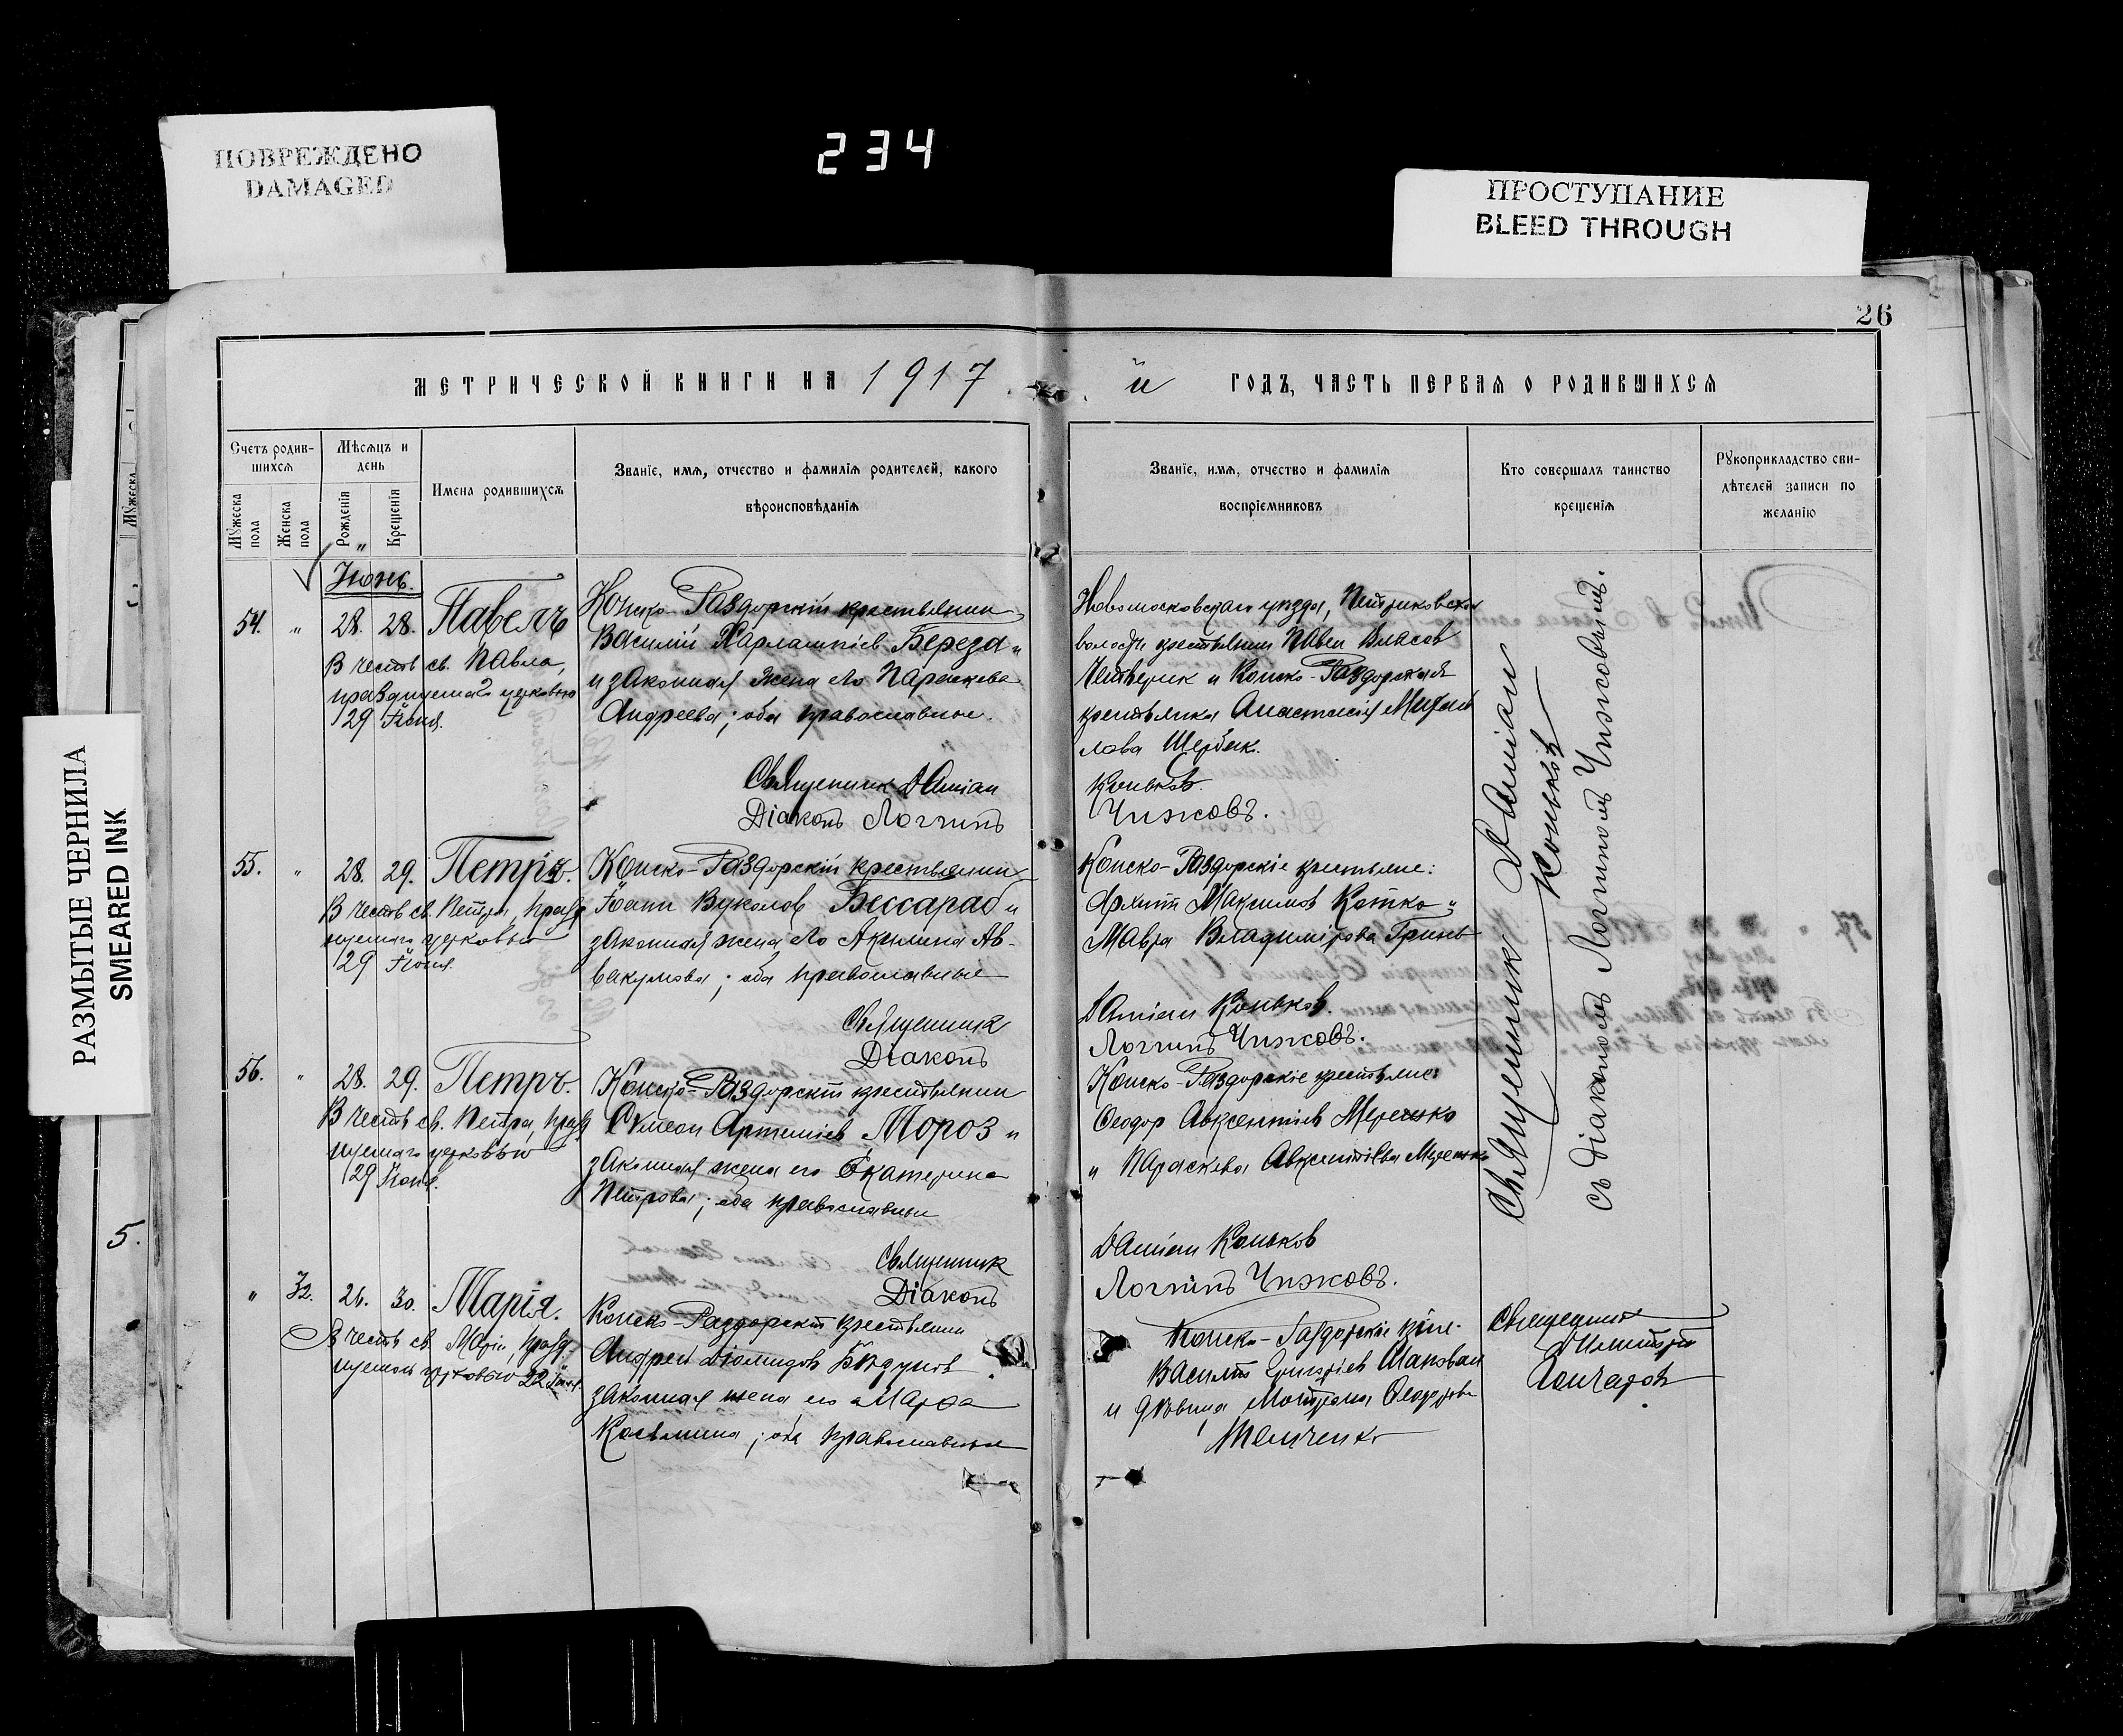 234
ПОВРЕЖДЕНО
DAMAGED
ПРОСТУПАНИЕ
BLEED THROUGH
РАЗМЫТЫЕ ЧЕРНИЛА
SMEARED INK
26
МЕТРИЧЕСКОЙ КНИГИ НА 1917 й ГОДЪ, ЧАСТЬ ПЕРВАЯ О РОДИВШИХСЯ
Счетъ родив-
шихся
Мужеска пола
Женска пола
Мѣсяцъ и
день
Рожденія
Крещенія
Имена родившихся
Званіе, имя, отчество и фамилія родителей, какого
вѣроисповѣданія
Званіе, имя, отчество и фамилія
воспріемниковъ
Кто совершалъ таинство
крещенія
Рукоприкладство сви-
дѣтелей записи по
желанію
Іюнь.
54. " 28. 28. Павелъ
В честь св. Павла,
празднуемаго церковью
29 Іюня.
Конско-Раздорскій крестьянин
Василій Харлампіев Береза и
законная жена его Параскева
Андреева; оба православные.
Священник Даміан
Діаконъ Логгинъ
Новомосковскаго уѣзда, Петриковской
волости крестьянин Павел Власов
Четверик и Конско-Раздорская
крестьянка Анастасія Михай
лова Щербак.
Коньков.
Чижсовъ.
55. " 28. 29. Петръ.
В честь св. Петра, празд
нуемаго церковью
29 Іюня.
Конско-Раздорскій крестьянин
Іоанн Вуколов Бессараб и
законная жена его Акилина Ав-
вакумова; оба православные
Священник
Діаконъ
Конско-Раздорскіе крестьяне:
Архипп Максимов Котко и
Мавра Владимірова Гринь
Даміан Коньков.
Логгинъ Чижсовъ.
56. " 28. 29. Петръ.
В честь св. Петра, празд
нуемаго церковью
29 Іюня.
Конско-Раздорскій крестьянин
Симеон Артеміев Мороз и
законная жена его Екатерина
Петрова; оба православные
Священник
Діаконъ
Конско-Раздорскіе крестьяне:
Ѳеодор Авксентіев Мережко
и Параскева Авксентіева Мережко
Даміан Коньков
Логгинъ Чижсовъ.
Священник Даміан
Коньков
съ діакономъ Логгиномъ Чижсовымъ.
" 32. 26. 30. Марія.
В честь св. Маріи, празд-
нуемой церковью 22 Іюля.
Конско-Раздорскій крестьянин
Андрей Діомидов
законная жена его Марѳа
Косьмина; оба православные
Конско-Раздорскіе кре-
Василій Григоріев Шаповал
и дѣвица Мотрона Ѳеодорова
Священник
Димитрій
Гончаров
5.